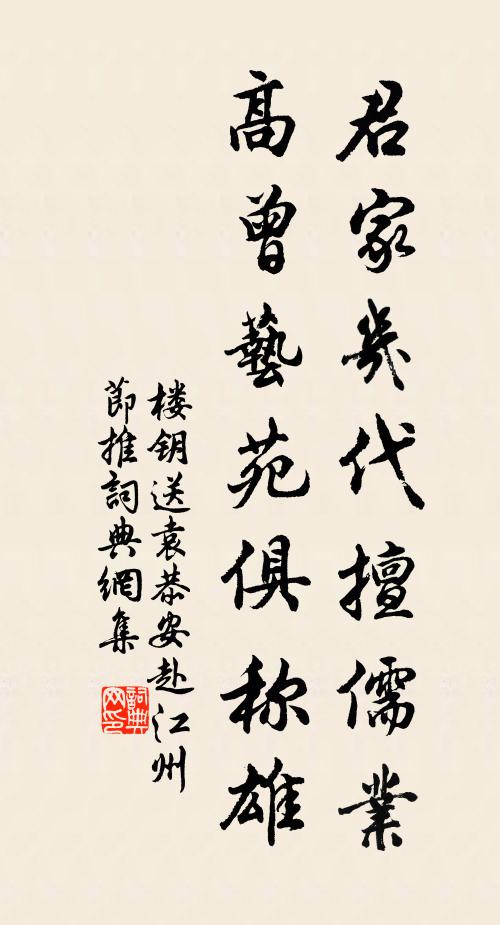 君家幾代擅儒業
高曾藝苑俱称雄
楼钥送袁恭安赴江州
節推詞典網集
詞典
网印